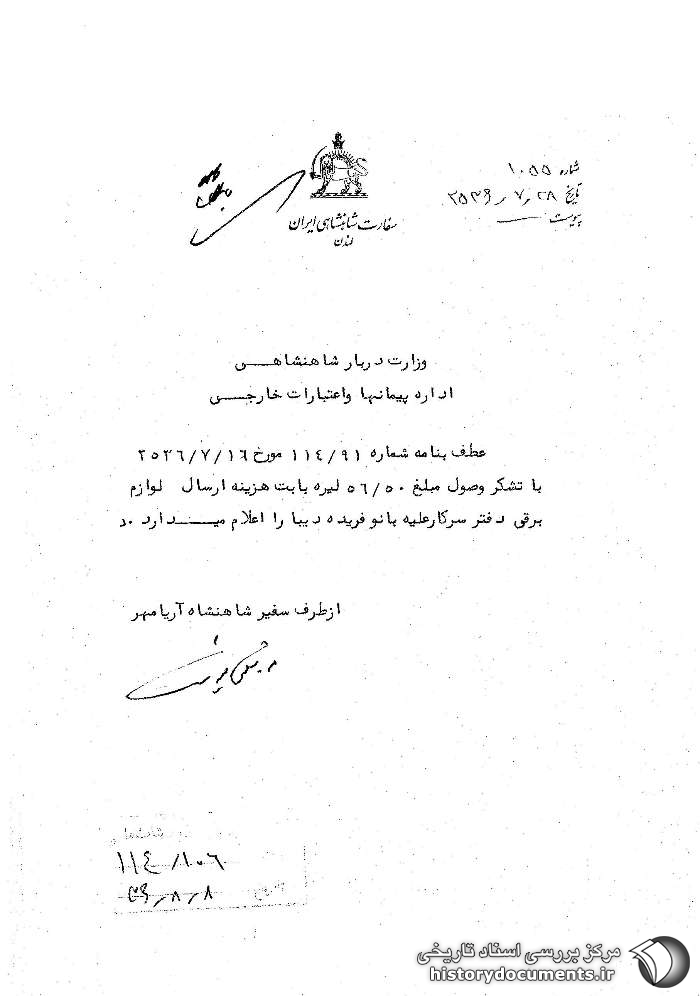 شماره ۱۰۵۵
تاریخ ۲۵۳۶/۷/۲۸
پیوست
سفارت شاهنشاهی ایران
لندن
وزارت دربار شاهنشاهی
اداره پیمانها واعتبارات خارجی
عطف بنامه شماره ۱۱٤/۹۱ مورخ ۲۵۳٦/۷/۱٦
با تشکر وصول مبلغ ۵٦/۵۰ لیره بابت هزینه ارسال لوازم
برقی دفتر سرکارعلیه بانو فریده دیبا را اعلام میدارد .د
ازطرف سفیر شاهنشاه آریامهر
۱۱٤/۱۰٦
۳۶/۸/۸
مرکز بررسی اسناد تاریخی
historydocuments.ir